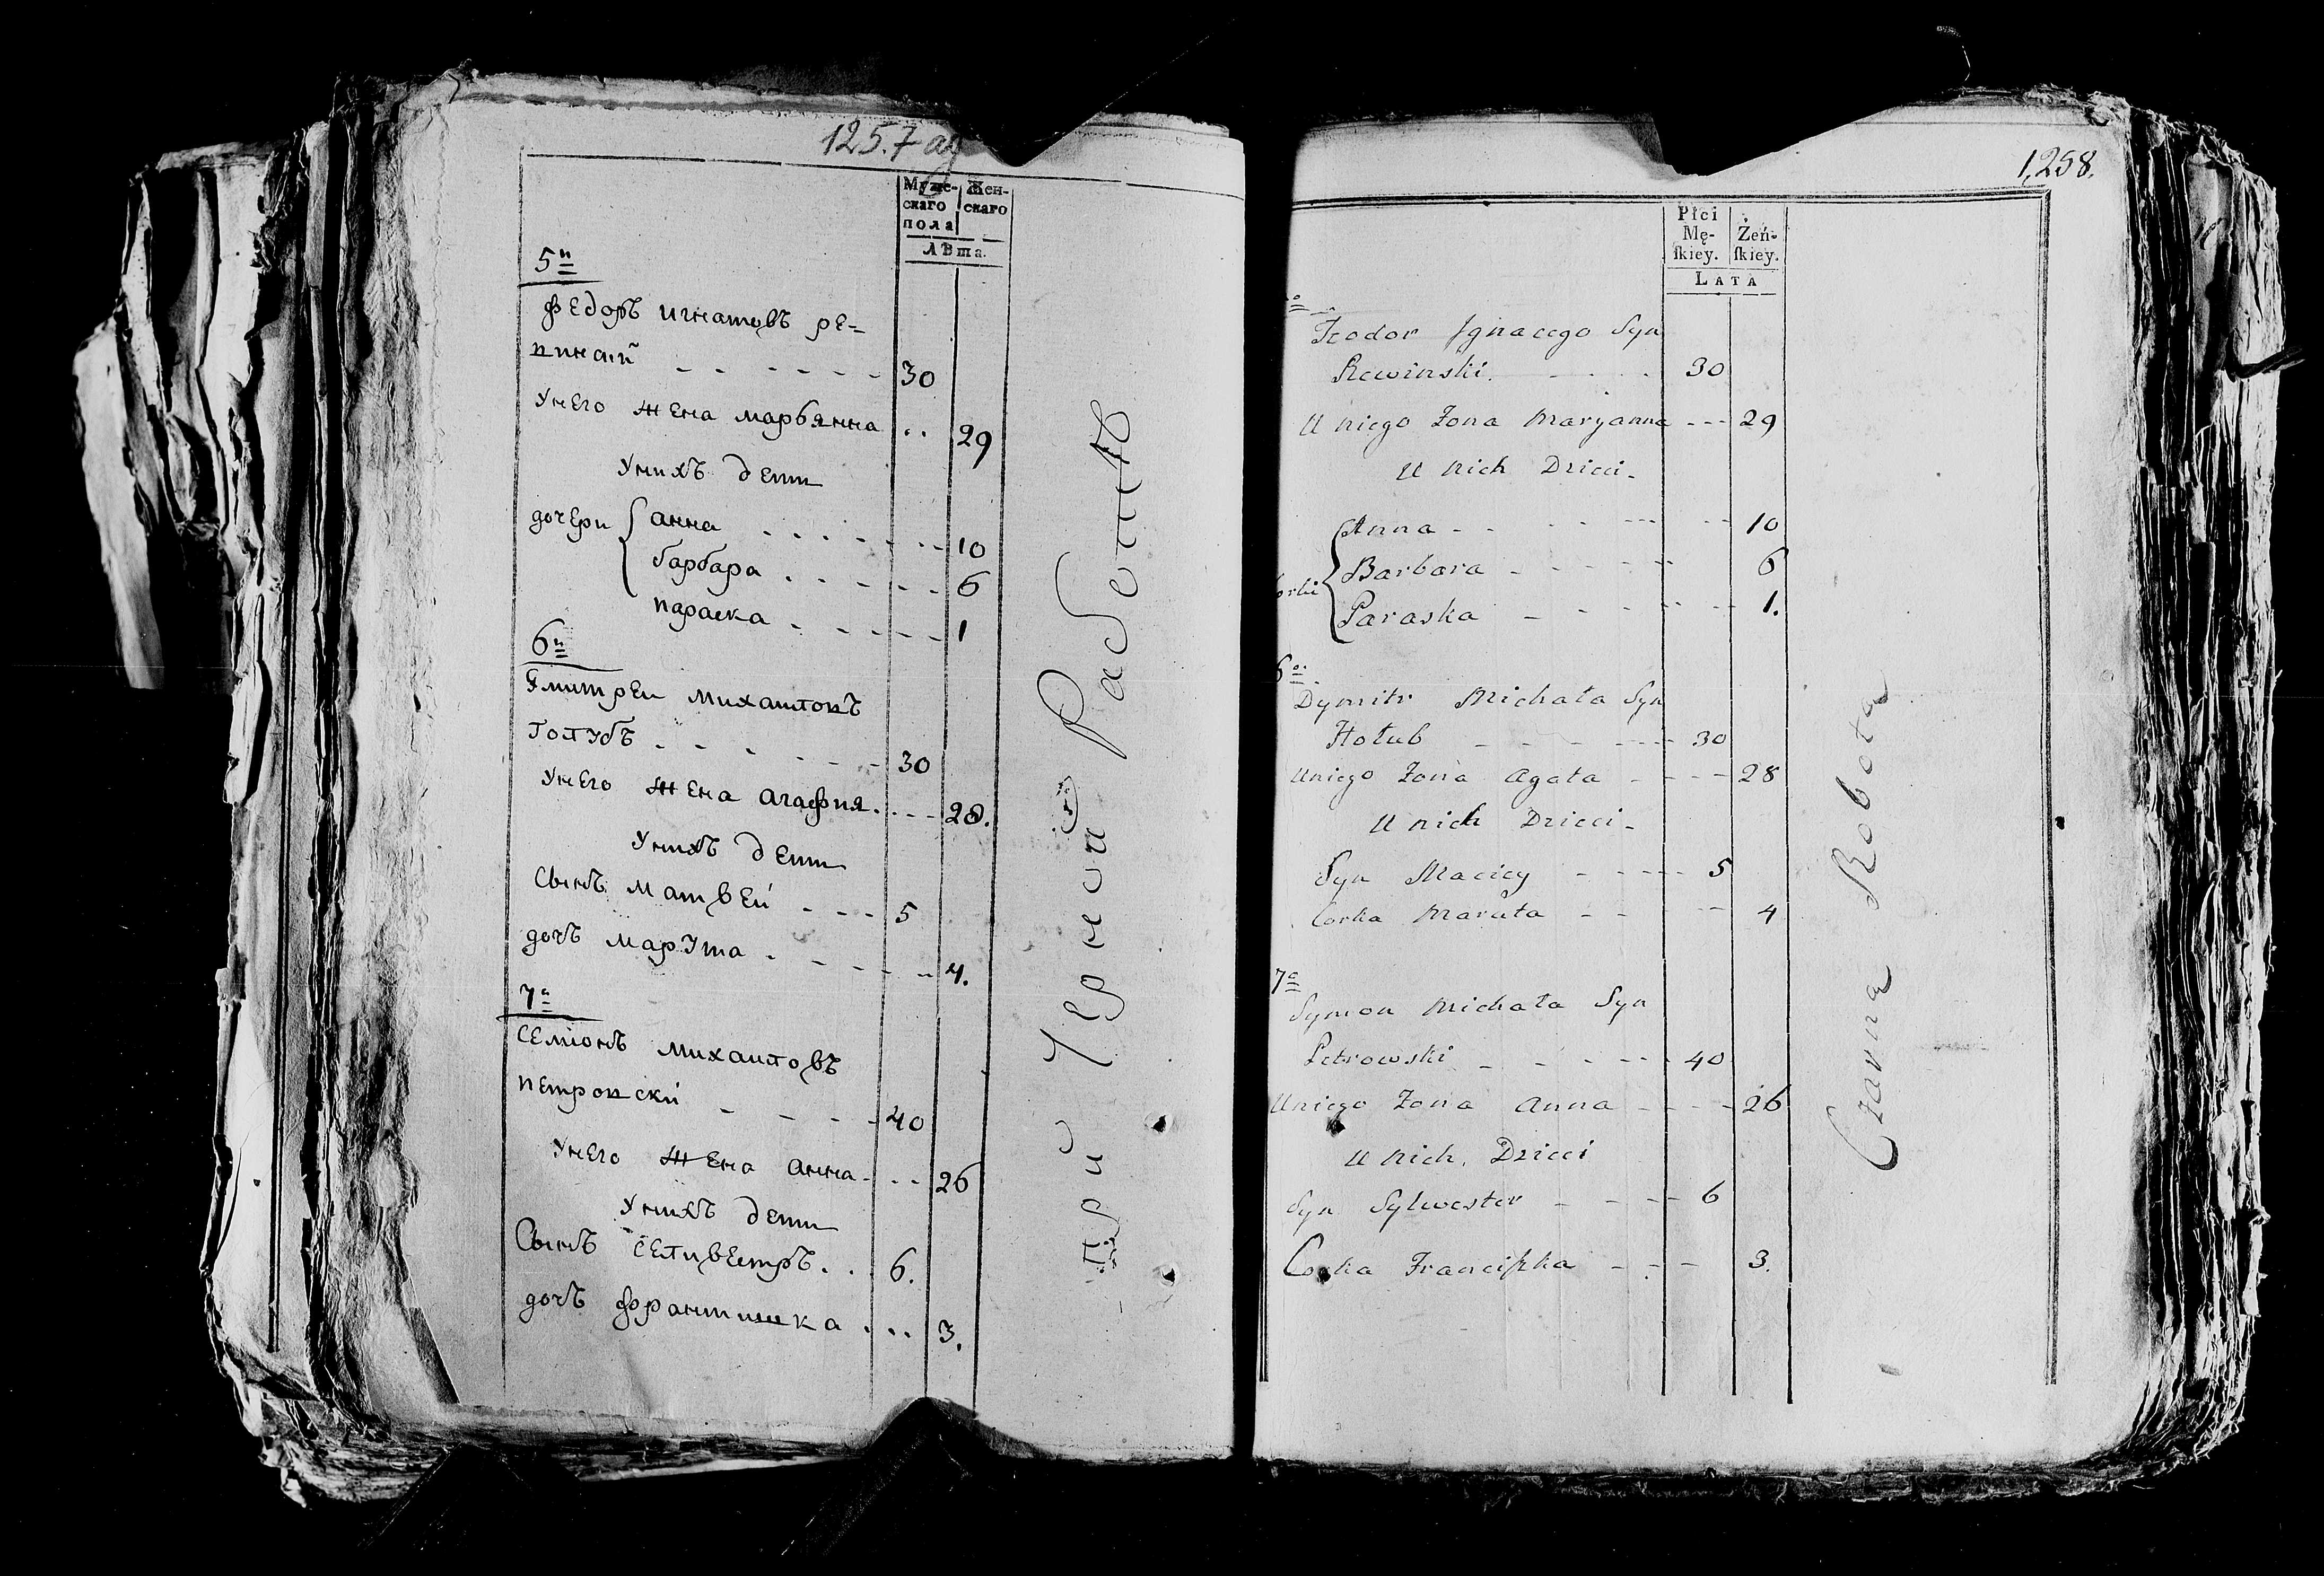 125.7
Муже- Жен-
скаго скаго
пола
Лѣта.
5й
федоръ игнатовъ ре-
винский - - - - - - 30
унего жена марьянна .. 29
унихъ дети
дочери { анна - - - - - - 10
барбара - - - - - - 6
параска - - - - - 1
6й
дмитреи михаиловъ
голубъ - - - - - - 30
унего жена агафия - - - 28.
унихъ дети
сынъ матвеи - - - 5
дочъ марута - - - - - 4.
7й
семионъ михаиловъ
петровски - - - - 40
унего жена анна - - - 26
унихъ дети
сынъ селивестръ . . 6.
дочъ франтишка . .. 3.
при Черной Работѣ
1,258.
Płci
Mę- Żeń-
ſkiey. ſkiey.
LATA
Teodor Jgnacego Syn
Rewinski - - - - 30
U niego Zona Maryanna --- 29
U nich Dzieci -
Corki { Anna - - - - - 10
Barbara - - - - - 6
Paraska - - - - - 1.
6o
Dymitr Michała Syn
Hołub - - - - - 30
Uniego Zona Agata - - - - 28
U nich Dzieci -
Syn Maciey - - - - 5
Corka Maruta - - - - 4
7o
Symon Michała Syn
Petrowski - - - - - 40
Uniego Zona Anna - - - - 26
U nich Dzieci
Syn Sylwester - - - - 6
Corka Franciſzka - - - 3.
Czarna Robota